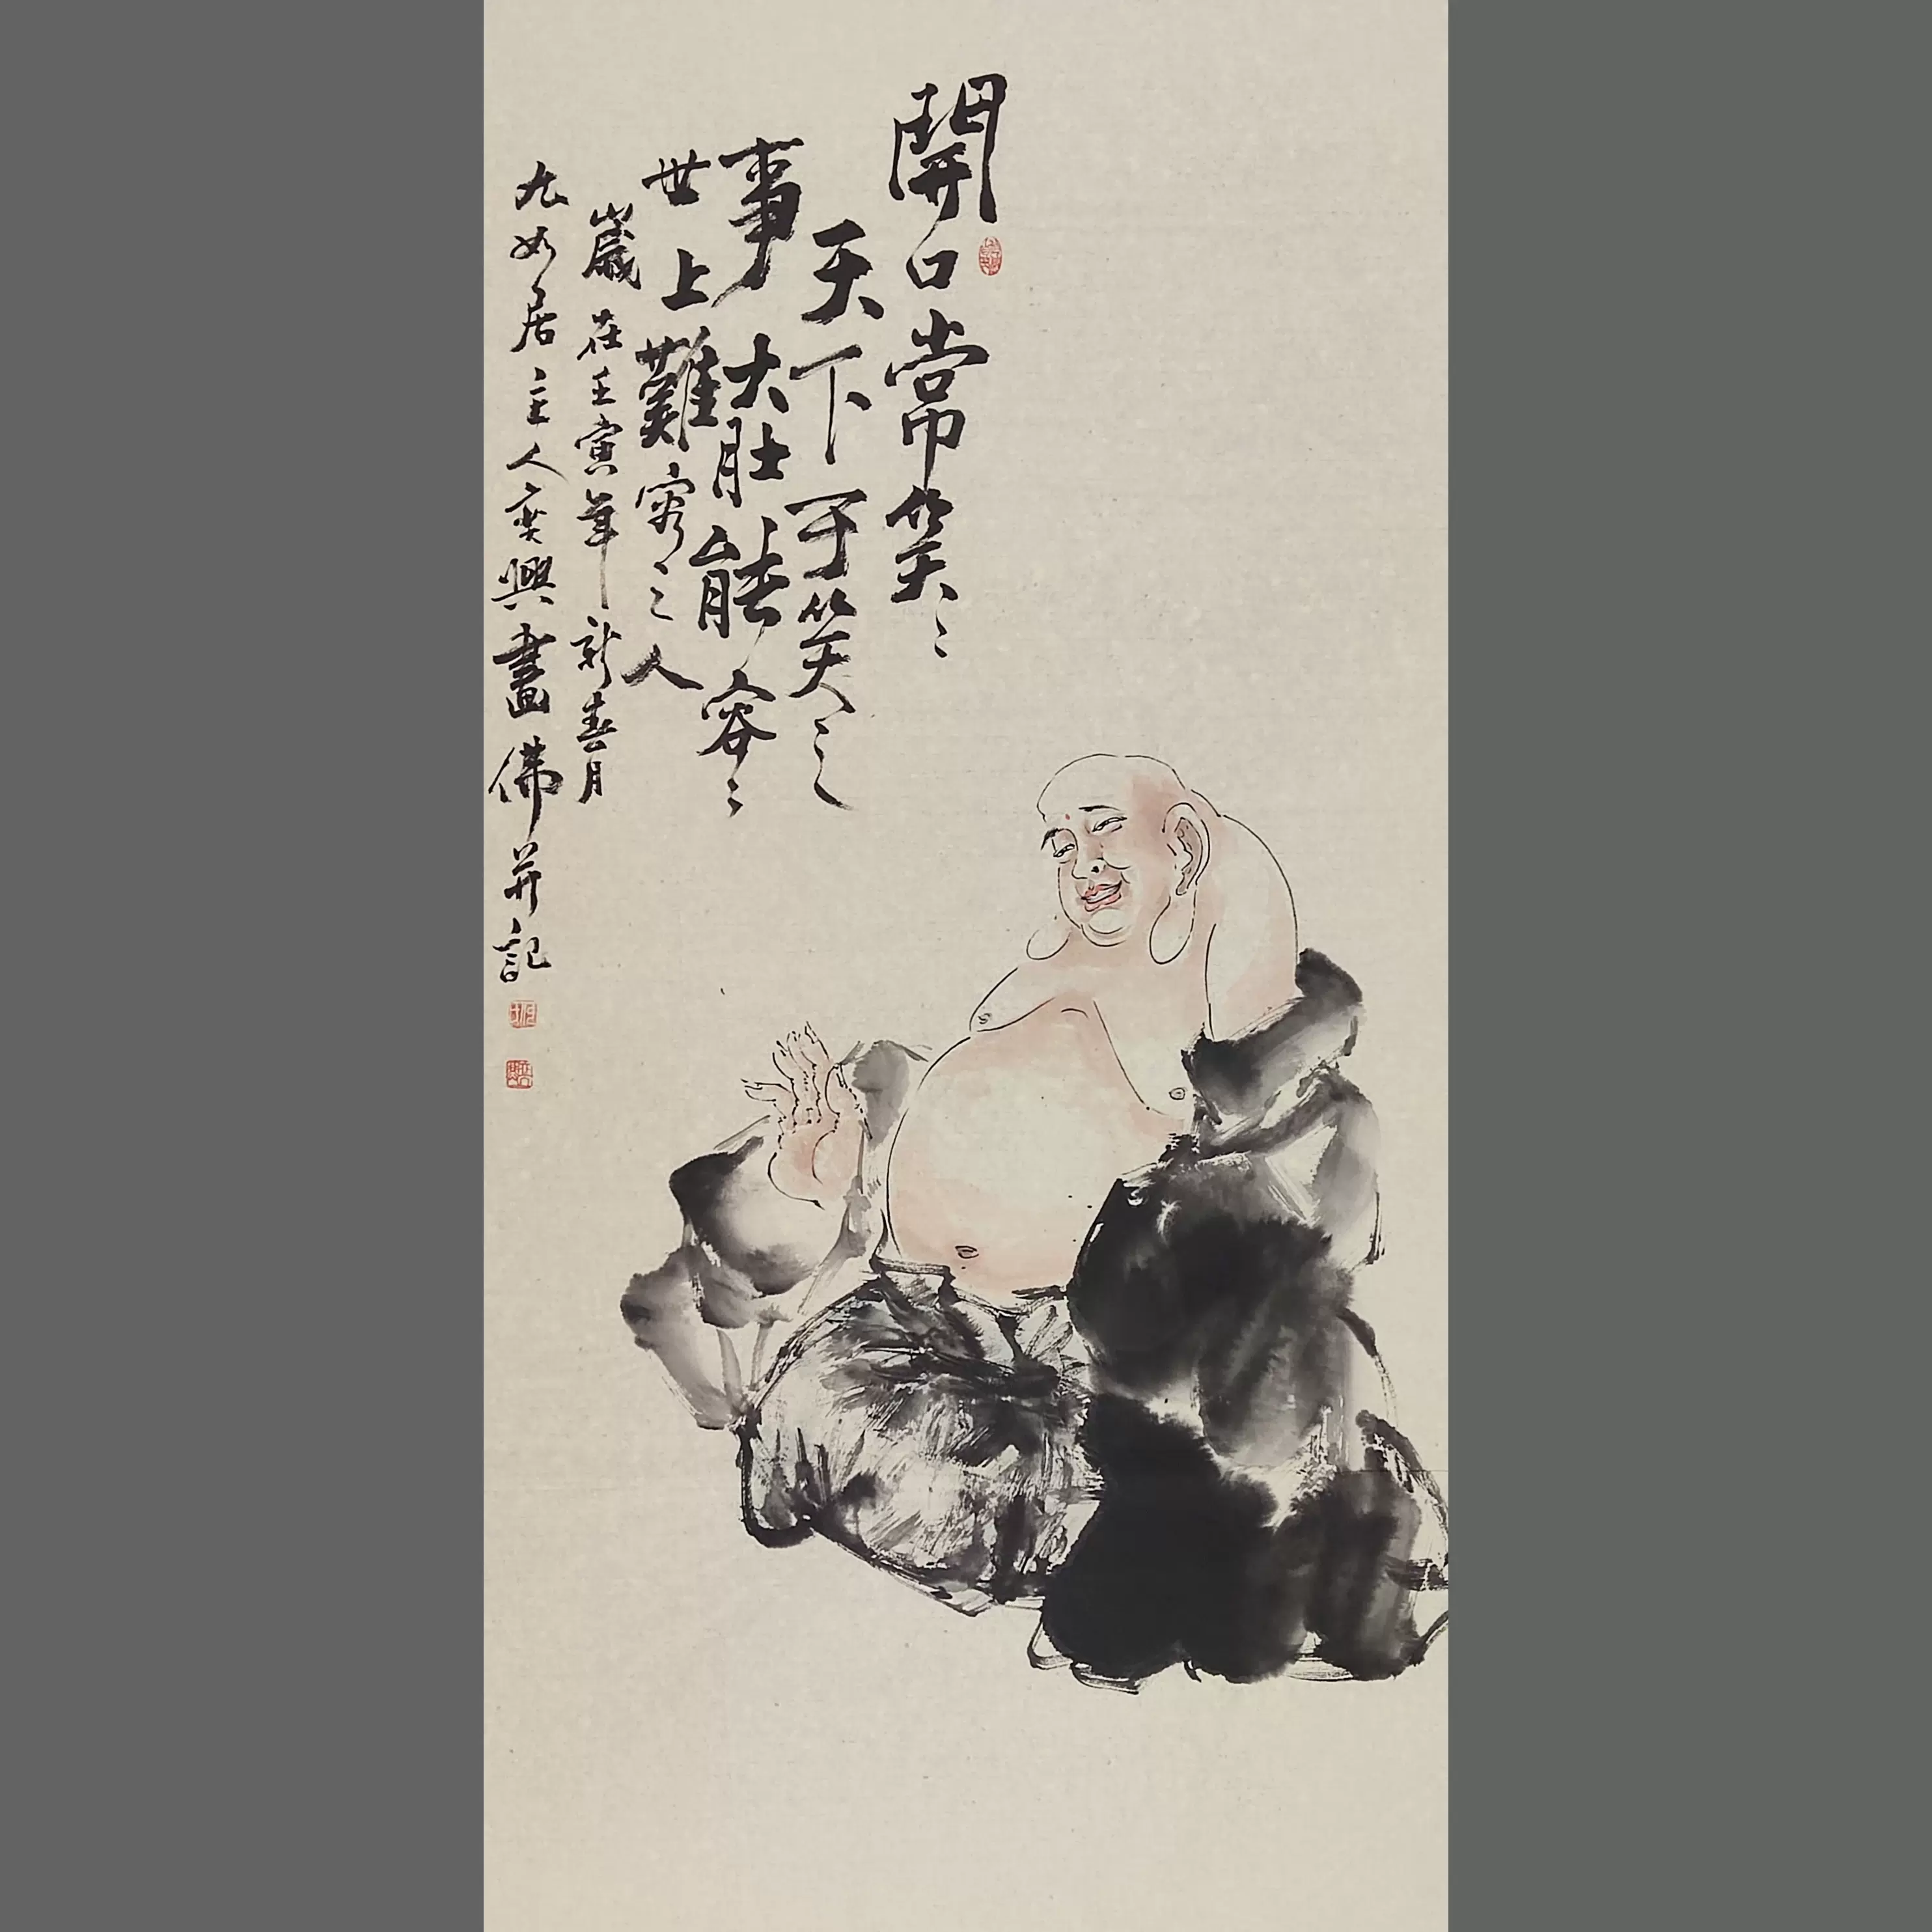 開口常笑〻
天下可笑之
事大肚能容〻
世上難容之人
歲在壬寅年新春月
九如居主人奕興畫佛并記